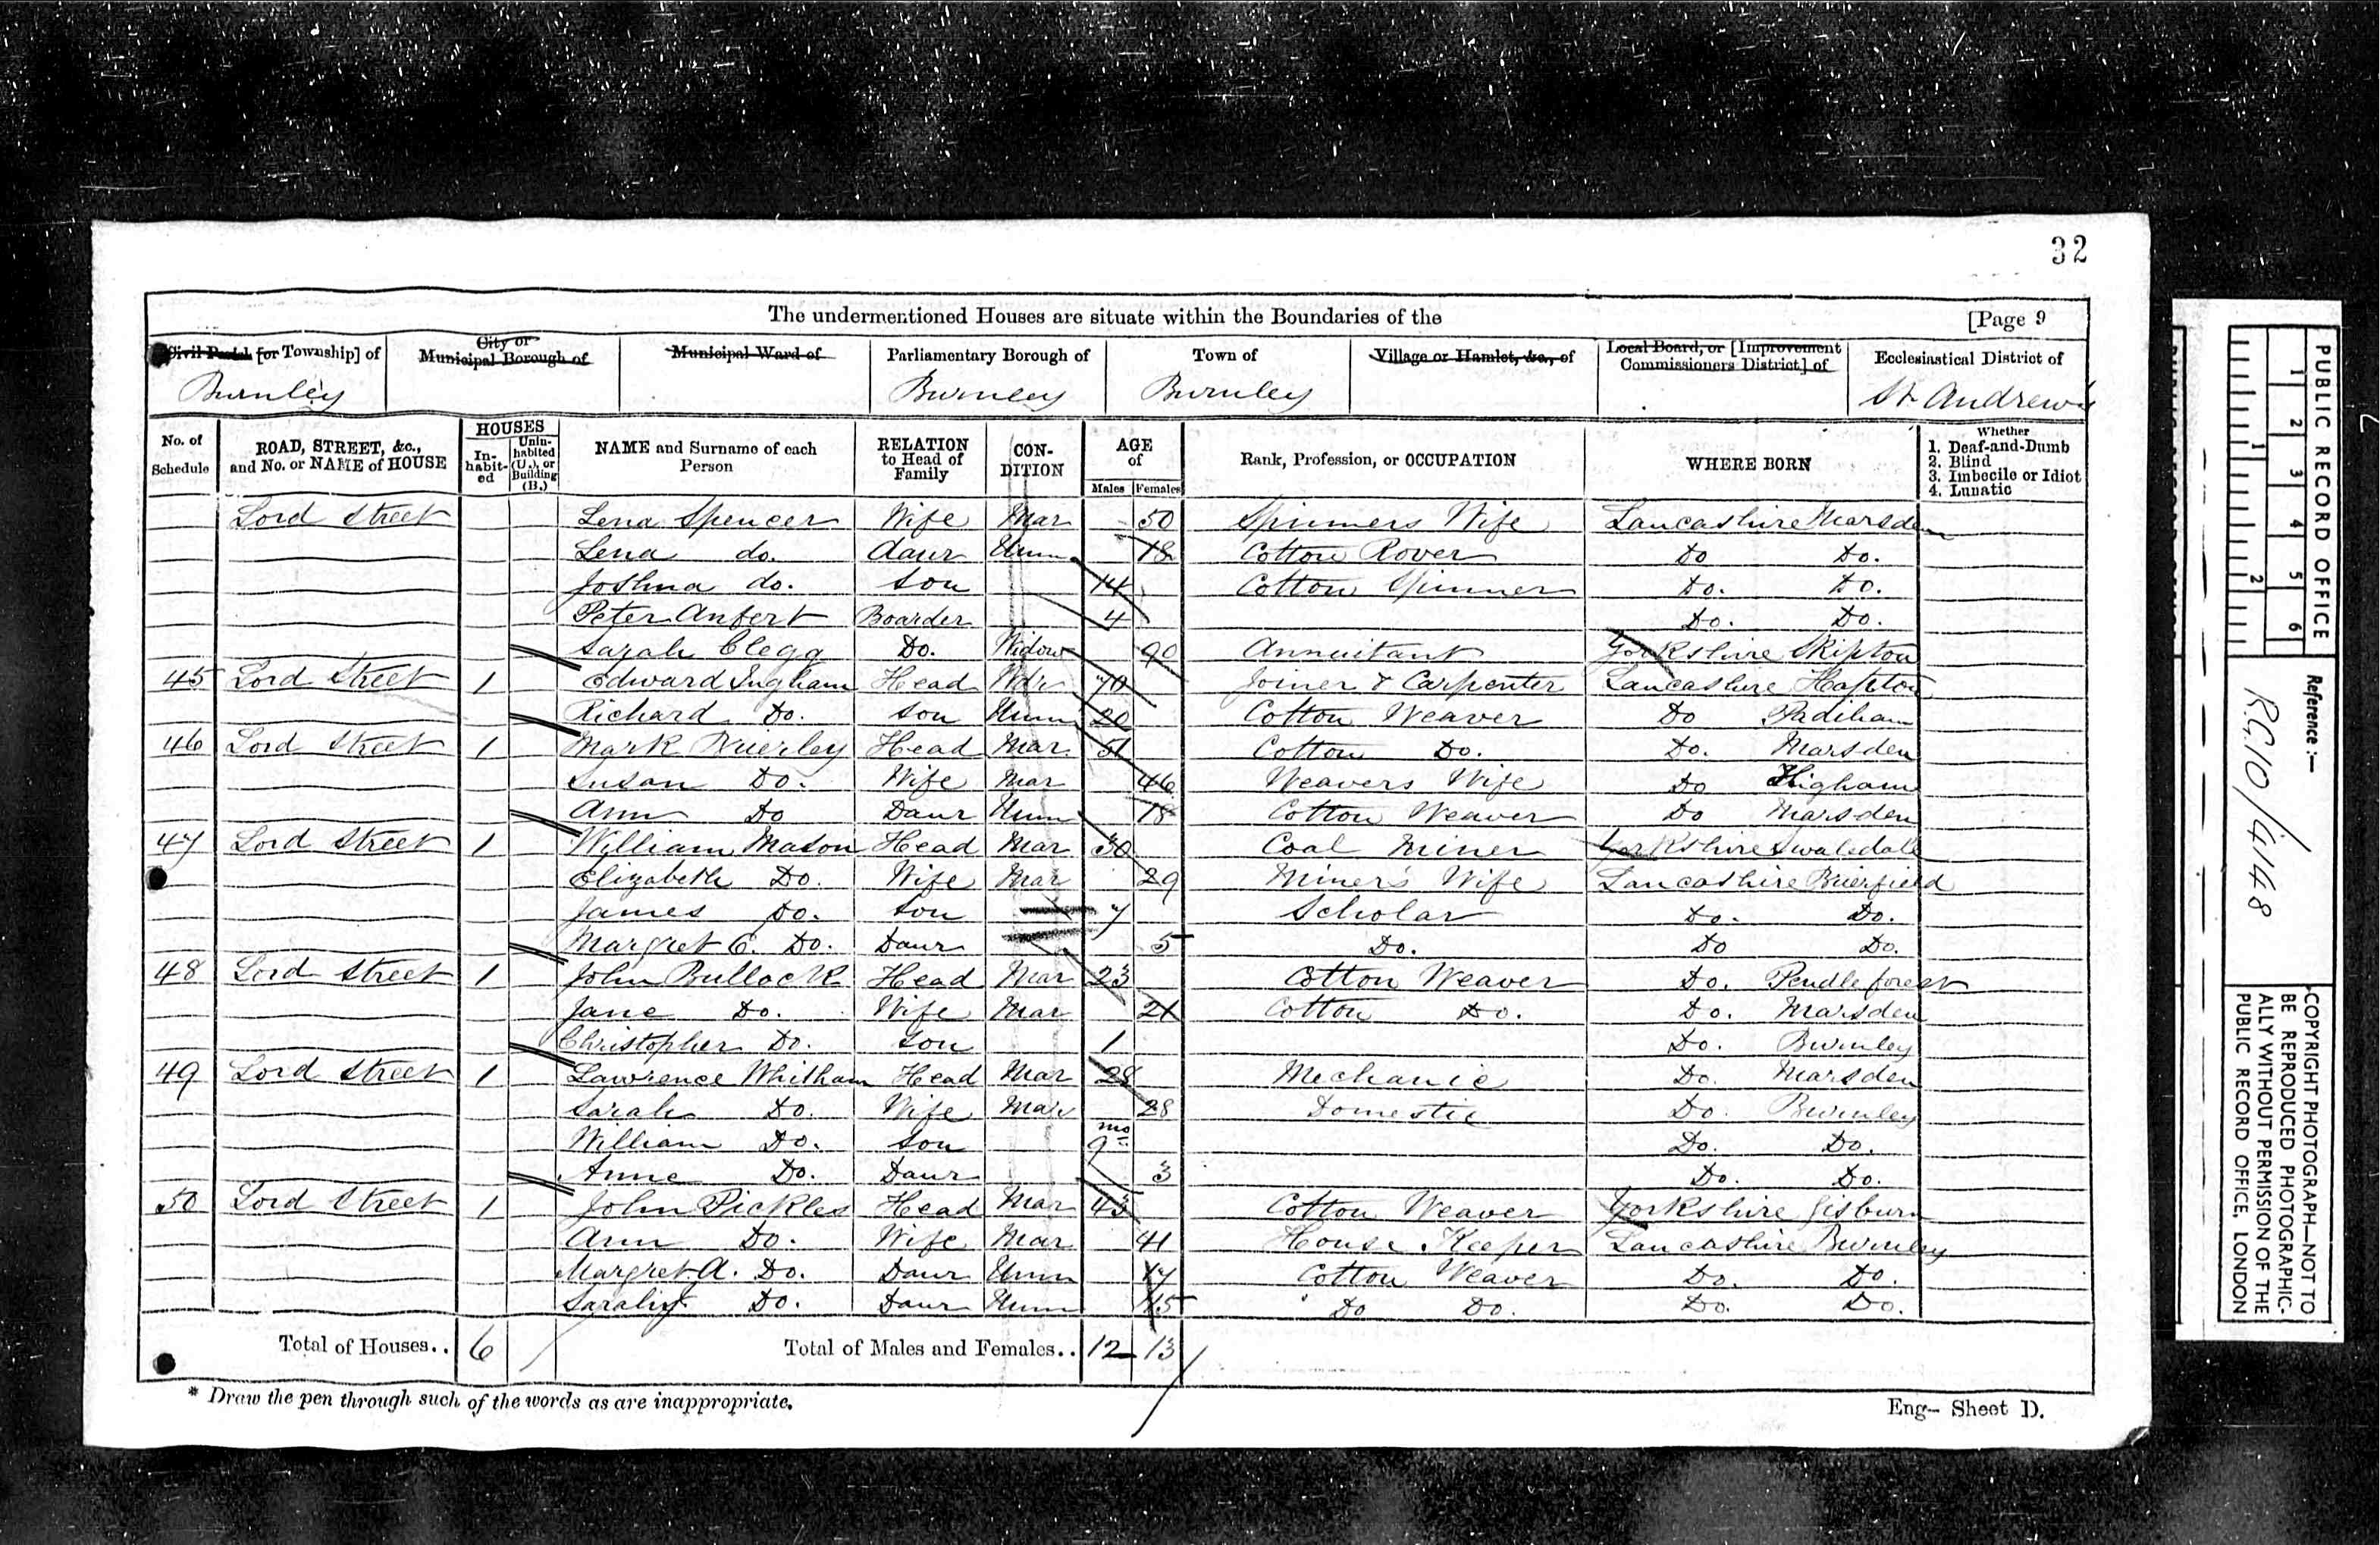 32
The undermentioned Houses are situate within the Boundaries of the [Page 9
Civil Parish [or Township] of City or Municipal Borough of Municipal Ward of Parliamentary Borough of Town of Village or Hamlet, &c., of Local Board, or [Improvement Commissioners District] of Ecclesiastical District of
Burnley Burnley Burnley St Andrew's
No. of Schedule ROAD, STREET, &c., and No. or NAME of HOUSE HOUSES In-habit-ed Unin-habited (U.), or Building (B.) NAME and Surname of each Person RELATION to Head of Family CON-DITION AGE of Males Females Rank, Profession, or OCCUPATION WHERE BORN Whether 1. Deaf-and-Dumb 2. Blind 3. Imbecile or Idiot 4. Lunatic
Lord Street Lena Spencer Wife Mar 50 Spinners Wife Lancashire Marsden
Lena do. daur Unm 18 Cotton Rover Do Do.
Joshua do. Son 14 Cotton Spinner Do. Do.
Peter Boarder 4 Do. Do.
Sarah Clegg Do. Widow 90 Annuitant Yorkshire Skipton
45 Lord Street 1 Edward Ingham Head Wdr 70 Joiner & Carpenter Lancashire Hapton
Richard Do. Son Unm 20 Cotton Weaver Do Padiham
46 Lord Street 1 Mark Brierley Head Mar 51 Cotton Do. Do. Marsden
Susan Do. Wife Mar 46 Weavers Wife Do Higham
Ann Do Daur Unm 18 Cotton Weaver Do Marsden
47 Lord Street 1 William Mason Head Mar 30 Coal Miner Yorkshire Swaledale
Elizabeth Do. Wife Mar 29 Miner's Wife Lancashire Brierfield
James Do. Son 7 Scholar Do. Do.
Margret E. Do. Daur 5 Do. Do Do.
48 Lord Street 1 John Bullock Head Mar 23 Cotton Weaver Do. Pendle forest
Jane Do. Wife Mar 21 Cotton Do. Do. Marsden
Christopher Do. Son 1 Do. Burnley
49 Lord Street 1 Lawrence Whitham Head Mar 28 Mechanic Do. Marsden
Sarah Do. Wife Mar 28 Domestic Do. Burnley
William Do. Son 9 mo Do. Do.
Anne Do. Daur 3 Do. Do.
50 Lord Street 1 John Pickles Head Mar 43 Cotton Weaver Yorkshire Gisburn
Ann Do. Wife Mar 41 House Keeper Lancashire Burnley
Margret A. Do. Daur Unm 17 Cotton Weaver Do. Do.
Do. Daur Unm 15 Do Do. Do. Do.
Total of Houses.. 6 Total of Males and Females.. 12 13
* Draw the pen through such of the words as are inappropriate.
Eng- Sheet D.
PUBLIC RECORD OFFICE
1 2 3 4 5 6
1 2
Reference:-
R.G.10/4148
COPYRIGHT PHOTOGRAPH—NOT TO
BE REPRODUCED PHOTOGRAPHIC-
ALLY WITHOUT PERMISSION OF THE
PUBLIC RECORD OFFICE, LONDON